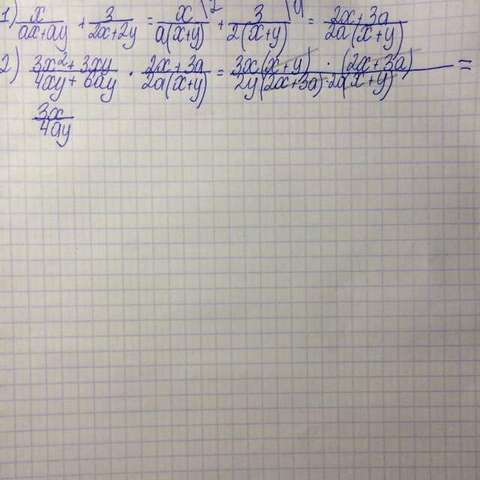 1) x/(ax+ay) + 3/(2x+2y) = x/(a(x+y)) \2 + 3/(2(x+y)) \a = (2x+3a)/(2a(x+y))
2) (3x²+3xy)/(4xy+6ay) · (2x+3a)/(2a(x+y)) = (3x(x+y) · (2x+3a))/(2y(2x+3a)·2a(x+y)) =
3x/4ay